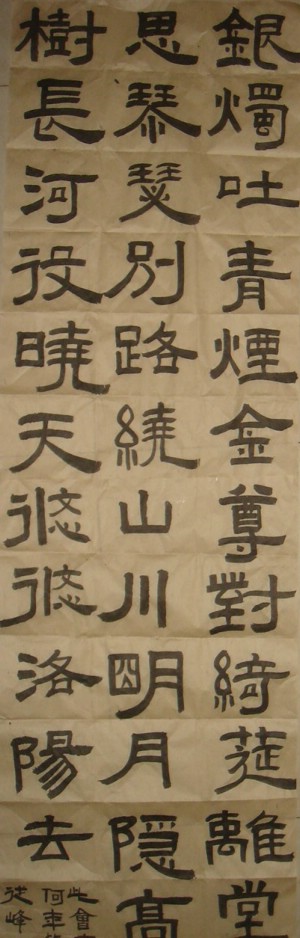 銀燭吐青煙金尊對綺莚離堂
思琴瑟別路繞山川明月隐高
樹長河役曉天悠悠洛陽去
此會
何年
峰